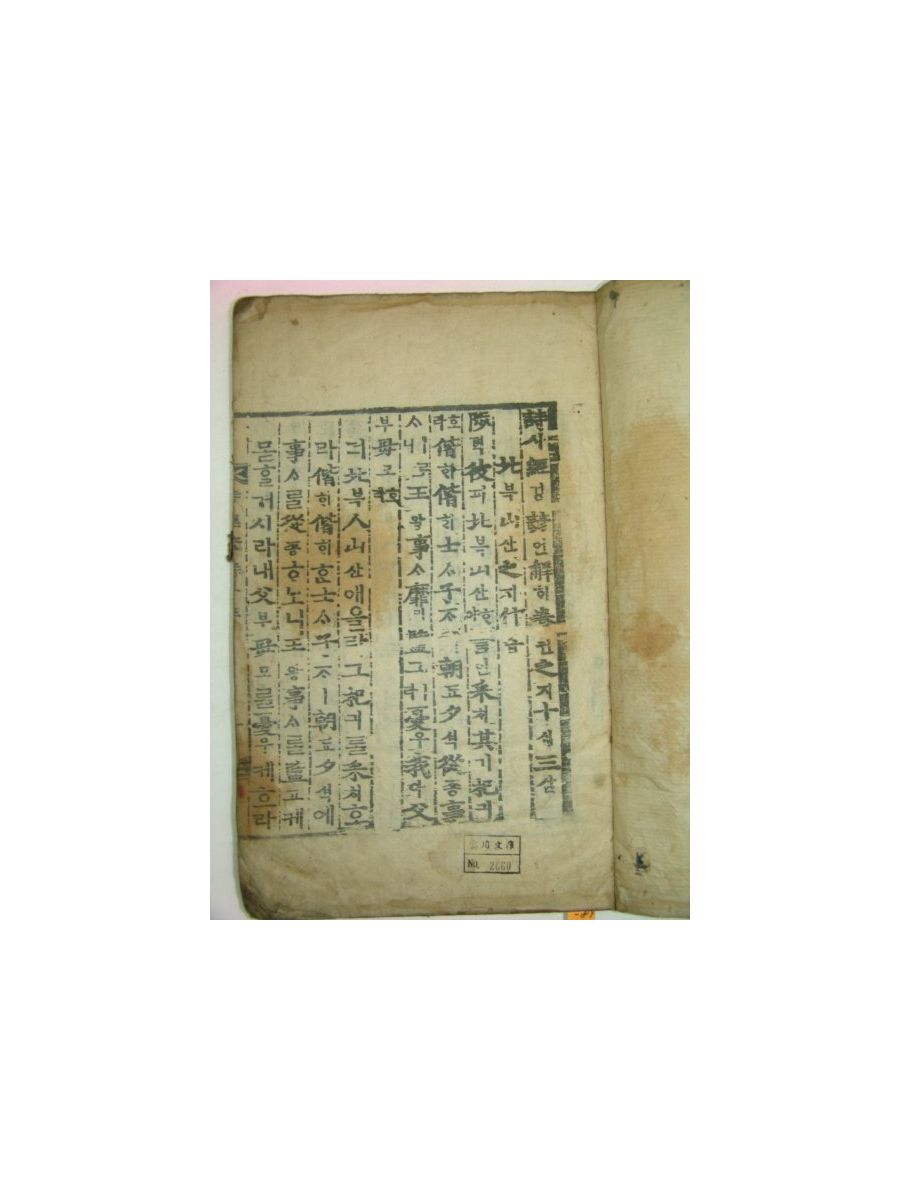 詩시經경諺언解ᄒᆡ卷권之지十십三삼
北북山산之지什습
陟척彼피北북山산ᄒᆞ야言언采ᄎᆡ其기杞긔
호라偕ᄒᆡ偕ᄒᆡ士ᄉᆞ子ᄌᆞㅣ朝됴夕셕從죵事
ᄉᆞㅣ로니王왕事ᄉᆞ靡미盬고ㅣ라憂우我아父
부母모호라
뎌北북山산애올라그杞긔를采ᄎᆡ호
라偕ᄒᆡ偕ᄒᆡᄒᆞᆫ士ᄉᆞ子ᄌᆞㅣ朝됴夕셕에
事ᄉᆞ를從죵ᄒᆞ노니王왕事ᄉᆞ를盬고케
몯ᄒᆞᆯ거시라내父부母모를憂우케호라
No. 2660